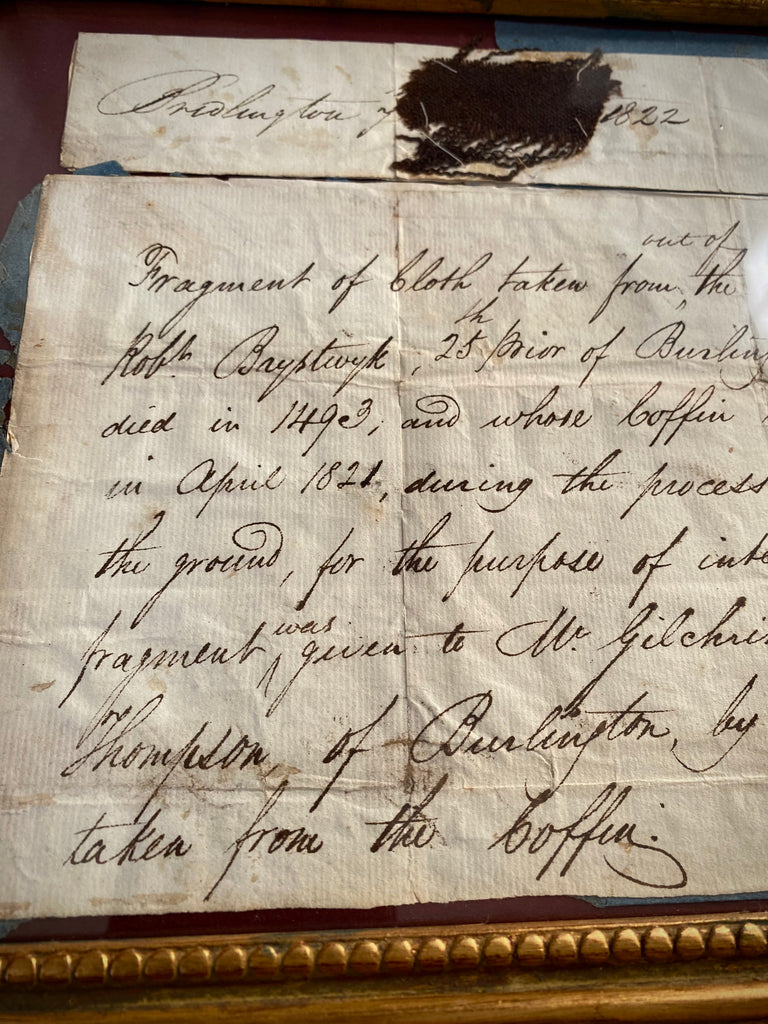 Bridlington 1822
Fragment of Cloth taken from out of the
Robt. Brystwyk, 25th Prior of Burling
died in 1493, and whose Coffin
in April 1821, during the process
the ground, for the purpose of inte
fragment was given to Mr. Gilchri
Thompson, of Burlington, by
taken from the Coffin.